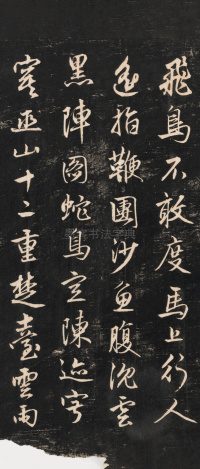 飛鳥不敢度馬上行人
指鞭團沙魚腹沈雲
黑陣圖蛇鳥空陳迹
巫山十二重楚臺雲雨
书法字典